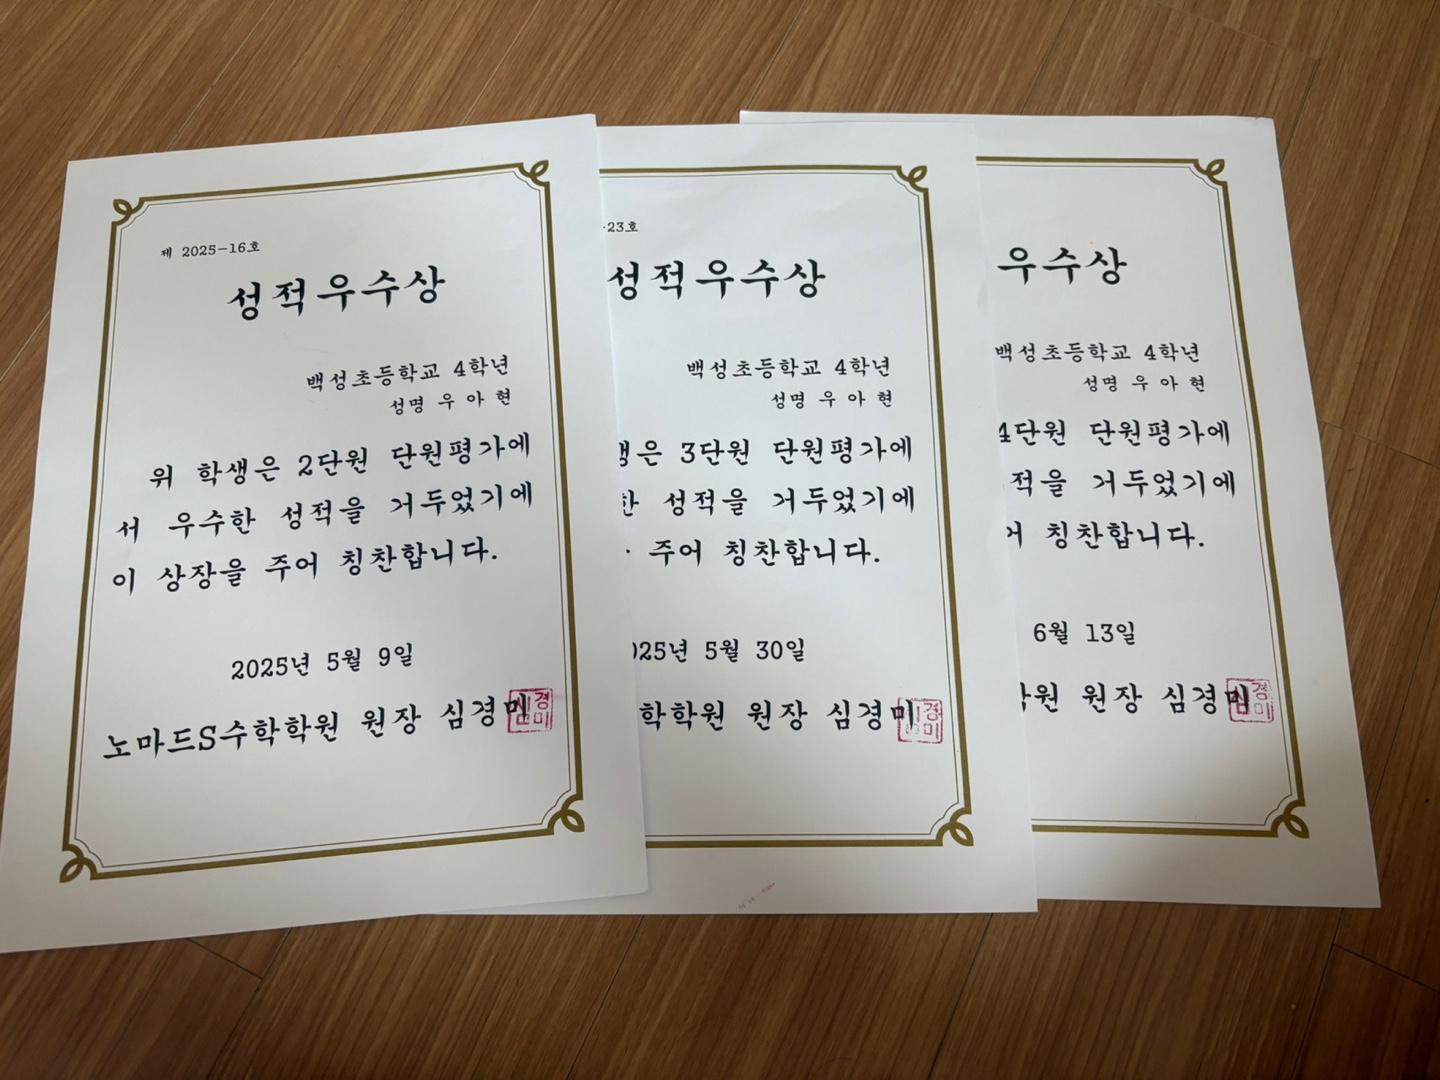 제 2025-16호
성적우수상
백성초등학교 4학년
성명 우 아 현
위 학생은 2단원 단원평가에
서 우수한 성적을 거두었기에
이 상장을 주어 칭찬합니다.
2025년 5월 9일
노마드S수학학원 원장 심경미
-23호
성적우수상
백성초등학교 4학년
성명 우 아 현
생은 3단원 단원평가에
한 성적을 거두었기에
주어 칭찬합니다.
025년 5월 30일
학학원 원장 심경미
우수상
백성초등학교 4학년
성명 우 아 현
4단원 단원평가에
적을 거두었기에
어 칭찬합니다.
6월 13일
학원 원장 심경미